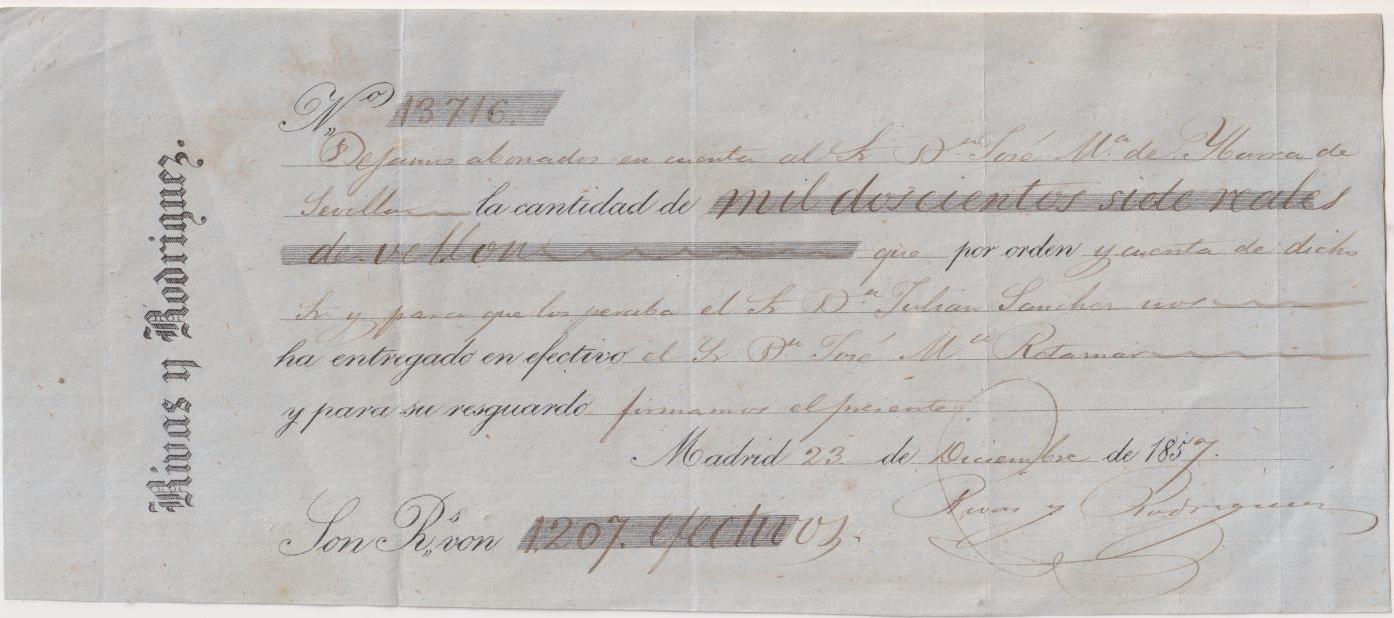 Rivas y Rodriguez.
Nº 13716.
Dejamos abonados en cuenta al Sr Dn José Mª de Ybarra de
Sevilla la cantidad de mil doscientos siete reales
de vellon que por orden y cuenta de dicho
Sr y para que los el Sr Dn Julian Sanchez nos
ha entregado en efectivo el Sr Dn José Mª
y para su resguardo firmamos el presente.
Madrid 23 de Diciembre de 1857.
Rivas y Rodriguez
Son Rs von 1.207. efectivos.